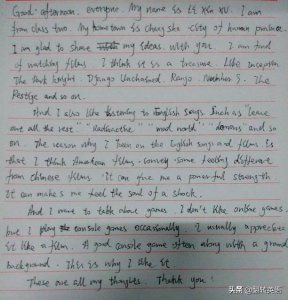 Good afternoon. everyone. My name is Li Xin Xu. I am
from class two. My hometown is Changsha city of hunan province.
I am glad to share my ideas. with you. I am fond
of watching films. I think it is a treasure. Like Inception
The Dark Knight. Django Unchained. Rango. Number 5. The
Prestige and so on.
And I also like listening to English songs. Such as "leave
out all the rest" "Radioactive" "mad world" "demons and so
on. The reason why I keen on the English songs and films is
that I think American films convey some feeling different
from Chinese films. It can give me a powerful strength
It can makes me feel the soul of a shock.
And I want to talk about games. I don't like online games.
but I play console games occasionally. I usually appreciate
it like a film. A good console game often along with a grand
background. This is why I like it.
These are all my thoughts. Thank you!
头条 @翻转英语